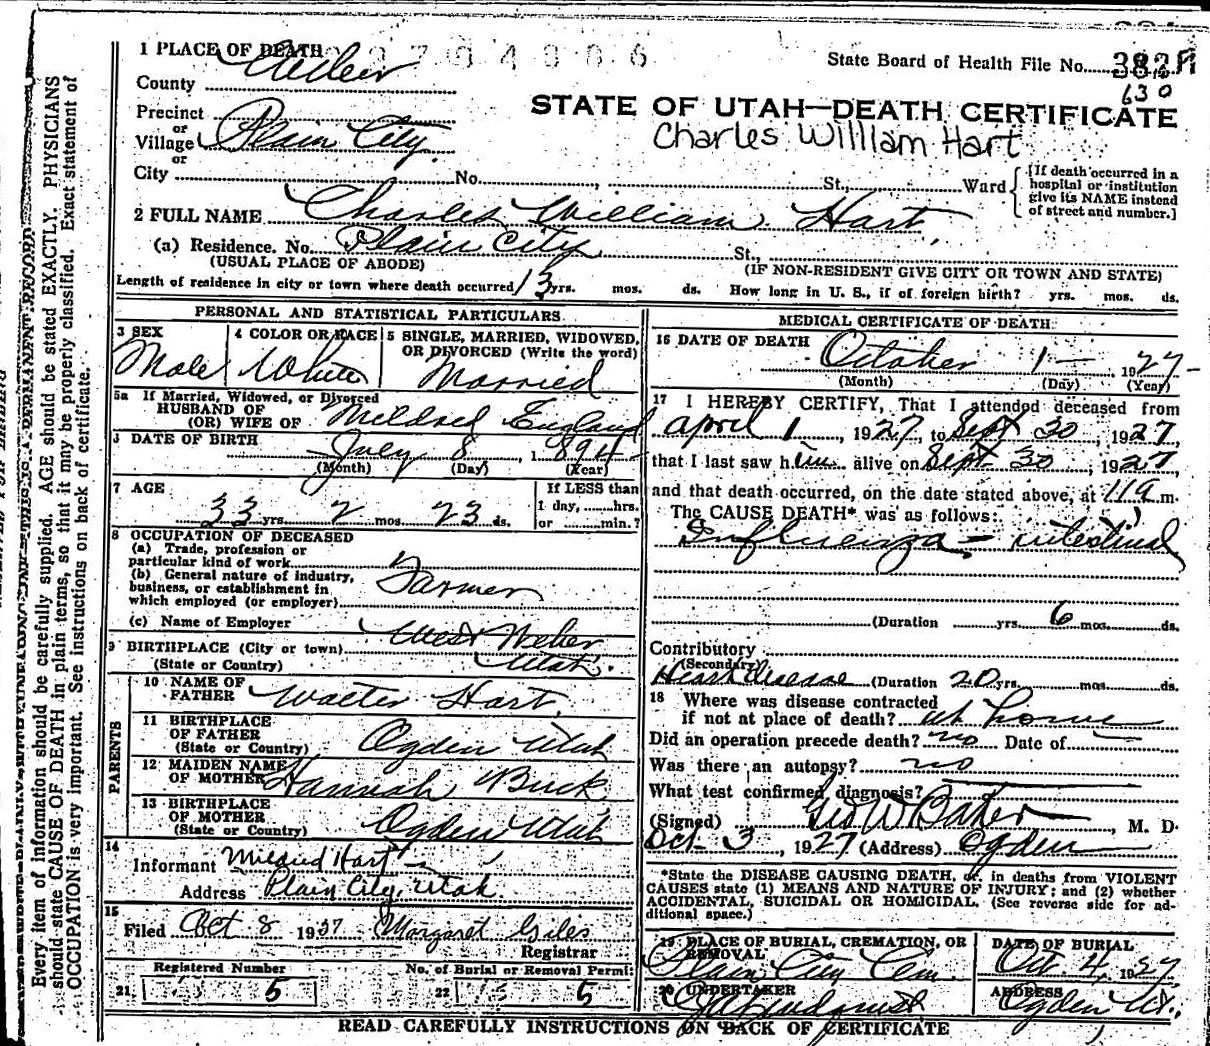 1 PLACE OF DEATH
State Board of Health File No. 382
630
County Weber
STATE OF UTAH—DEATH CERTIFICATE
Charles William Hart
Precinct
or
Village Plain City.
or
City No. , St., Ward
[If death occurred in a hospital or institution give its NAME instead of street and number.]
2 FULL NAME Charles William Hart,
(a) Residence. No. Plain City St.,
(USUAL PLACE OF ABODE) (IF NON-RESIDENT GIVE CITY OR TOWN AND STATE)
Length of residence in city or town where death occurred 13 yrs. mos. ds. How long in U. S., if of foreign birth? yrs. mos. ds.
PERSONAL AND STATISTICAL PARTICULARS.
3 SEX Male
4 COLOR OR RACE White
5 SINGLE, MARRIED, WIDOWED, OR DIVORCED (Write the word) Married
5a If Married, Widowed, or Divorced
HUSBAND OF
(OR) WIFE OF Mildred England
6 DATE OF BIRTH July 8, 1894
(Month) (Day) (Year)
7 AGE
33 yrs. 2 mos. 23 ds.
If LESS than
1 day, hrs.
or min.?
8 OCCUPATION OF DECEASED
(a) Trade, profession or
particular kind of work
(b) General nature of industry,
business, or establishment in
which employed (or employer) Farmer
(c) Name of Employer
9 BIRTHPLACE (City or town) West Weber
(State or Country) Utah.
PARENTS
10 NAME OF
FATHER Walter Hart,
11 BIRTHPLACE
OF FATHER
(State or Country) Ogden Utah
12 MAIDEN NAME
OF MOTHER Hannah Buck
13 BIRTHPLACE
OF MOTHER
(State or Country) Ogden Utah
14
Informant Mildred Hart
Address Plain City, Utah.
15
Filed Oct 8 1927 Margaret Giles
Registrar
Registered Number No. of Burial or Removal Permit
21. 5 22 5
MEDICAL CERTIFICATE OF DEATH.
16 DATE OF DEATH October 1— , 1927-
(Month) (Day) (Year)
17 I HEREBY CERTIFY, That I attended deceased from
April 1, 1927, to Sept 30, 1927,
that I last saw him alive on Sept. 30, 1927,
and that death occurred, on the date stated above, at 11 a m.
The CAUSE DEATH* was as follows:
Influenza - intestinal
(Duration yrs. 6 mos. ds.
Contributory
(Secondary)
Heart disease (Duration 20 yrs. mos. ds.
18 Where was disease contracted
if not at place of death? at home
Did an operation precede death? no Date of
Was there an autopsy? no
What test confirmed diagnosis?
(Signed) Geo W Baker, M. D.
Oct. 3, 1927 (Address) Ogden
*State the DISEASE CAUSING DEATH, or, in deaths from VIOLENT
CAUSES state (1) MEANS AND NATURE OF INJURY; and (2) whether
ACCIDENTAL, SUICIDAL OR HOMICIDAL. (See reverse side for ad-
ditional space.)
19 PLACE OF BURIAL, CREMATION, OR
REMOVAL
Plain City Cem.
DATE OF BURIAL
Oct 4, 1927
20 UNDERTAKER
ADDRESS
Ogden Ut.,
READ CAREFULLY INSTRUCTIONS ON BACK OF CERTIFICATE
Every item of information should be carefully supplied. AGE should be stated EXACTLY. PHYSICIANS
should state CAUSE OF DEATH in plain terms, so that it may be properly classified. Exact statement of
OCCUPATION is very important. See instructions on back of certificate.